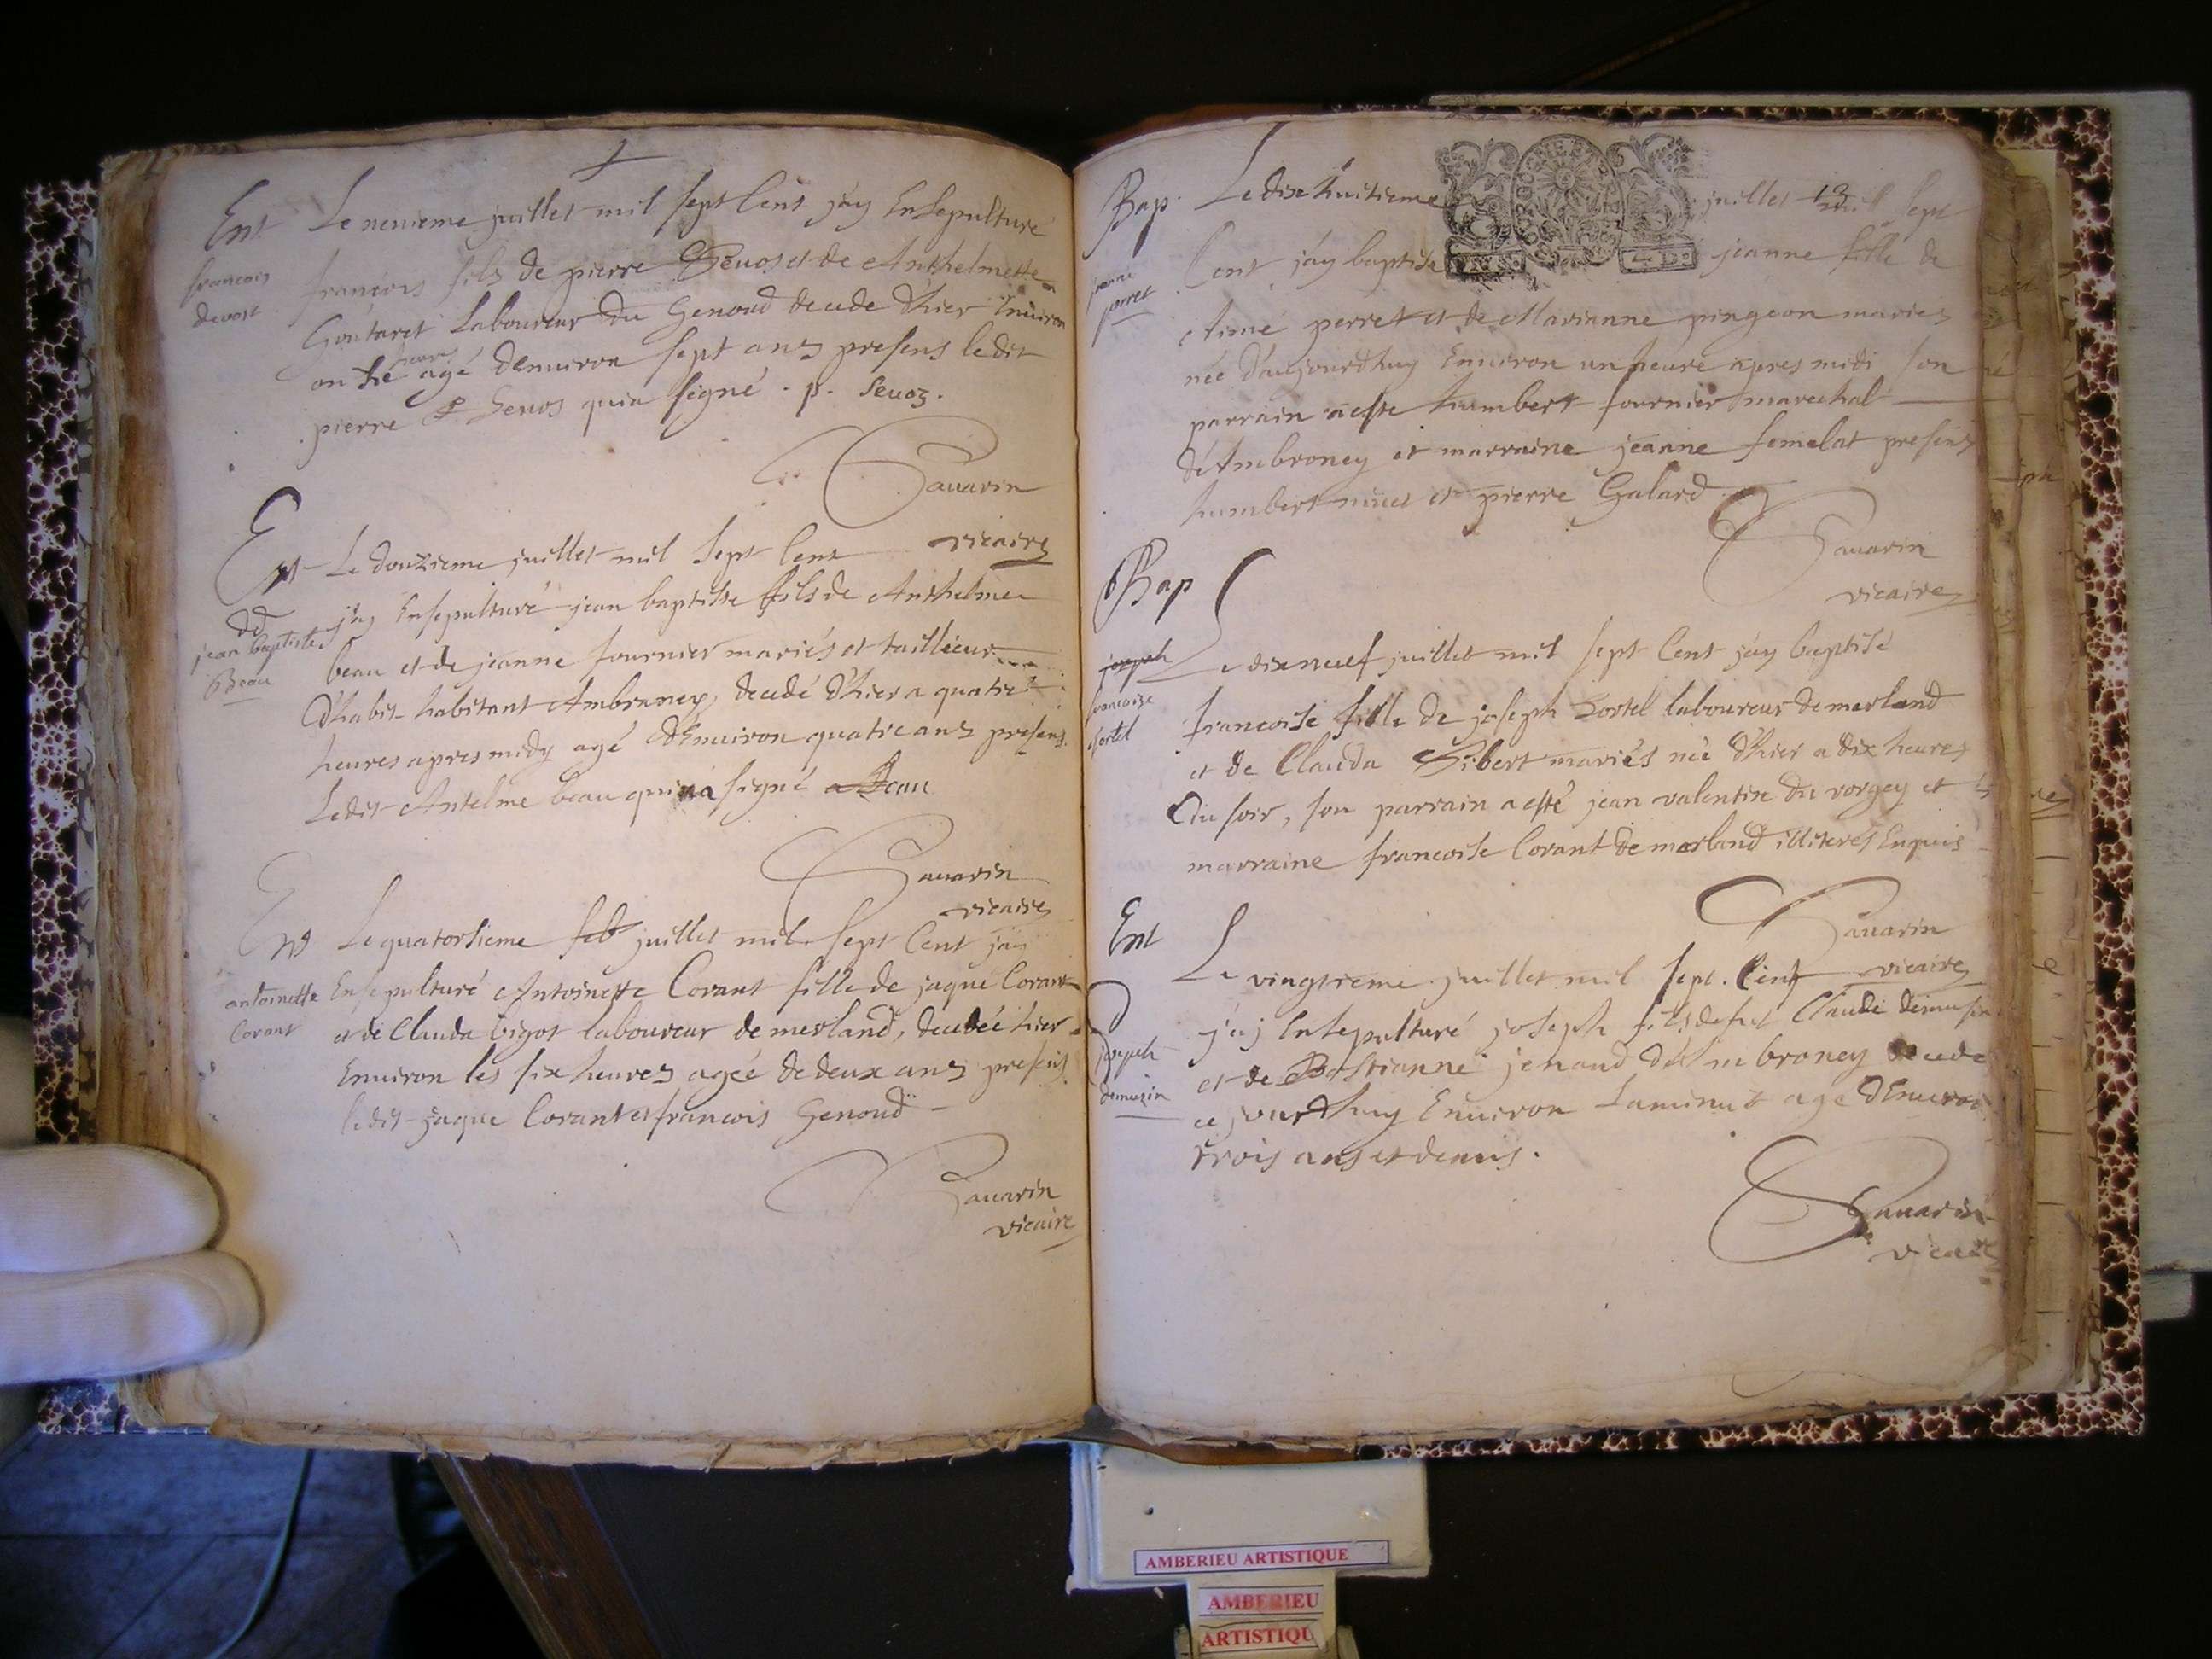 Ent Le neuvieme juillet mil sept Cent j'ay Ensepulturé
francois
devost
françois fils de pierre et de Anthelmette
Goutaret Laboureur du Genoud decede d'hier Environ
onze heures agé denviron sept ans presens ledit
pierre Sevos qui a signé . p. Sevoz .
Savarin
vicaire
Ent Le douzieme juillet mil sept Cent
jean baptiste
Beau
j'ay Ensepulturé jean baptiste fils de Anthelme
beau et de jeanne fournier mariés et tailleur
d'habit habitant Ambroney, decedé d'hier a quatre
heures apres midy agé d'Environ quatre ans presens
Ledit Antelme beau qui a signé a Beau
Savarin
vicaire
Ent Le quatorsieme juillet mil sept Cent j'ay
antoinette
Corant
Ensepulturé Antoinette Corant fille de jaque Corant
et de Clauda bigot laboureur de merland, decedée hier
Environ les six heures agée de deux ans presens
ledit jaque Corant et francois Genoud
Savarin
vicaire
Bap Le dixe huitieme juillet mil sept
jeanne
perret
Cent j'ay baptisé jeanne fille de
Aimé perret et de Marianne pingeon mariés
née d'aujourdhuy Environ un heure apres midi son
parrain a este humbert fournier marechal
d'Ambroney et marraine jeanne femelat presens
humbert et pierre Galard
Savarin
vicaire
Bap
Le dix neuf juillet mil sept Cent j'ay baptisé
joseph
francoise
Sortel
francoise fille de joseph Sortel laboureur de merland
et de Clauda Sibert mariés née d'hier a dix heures
du soir, son parrain a esté jean valentin du vorgey et
marraine francoise Corant de merland illiterés Enquis
Savarin
vicaire
Ent Le vingtieme juillet mil sept. Cent
joseph
demusin
j'aj Ensepulturé joseph fils de fut Claude demusin
et de Bastianne jenaud d'Ambroney decede
ce jourdhuy Environ Laminuit age d'Environ
trois ans et demis .
Savarin
vicaire
AMBERIEU ARTISTIQUE
AMBERIEU
ARTISTIQU